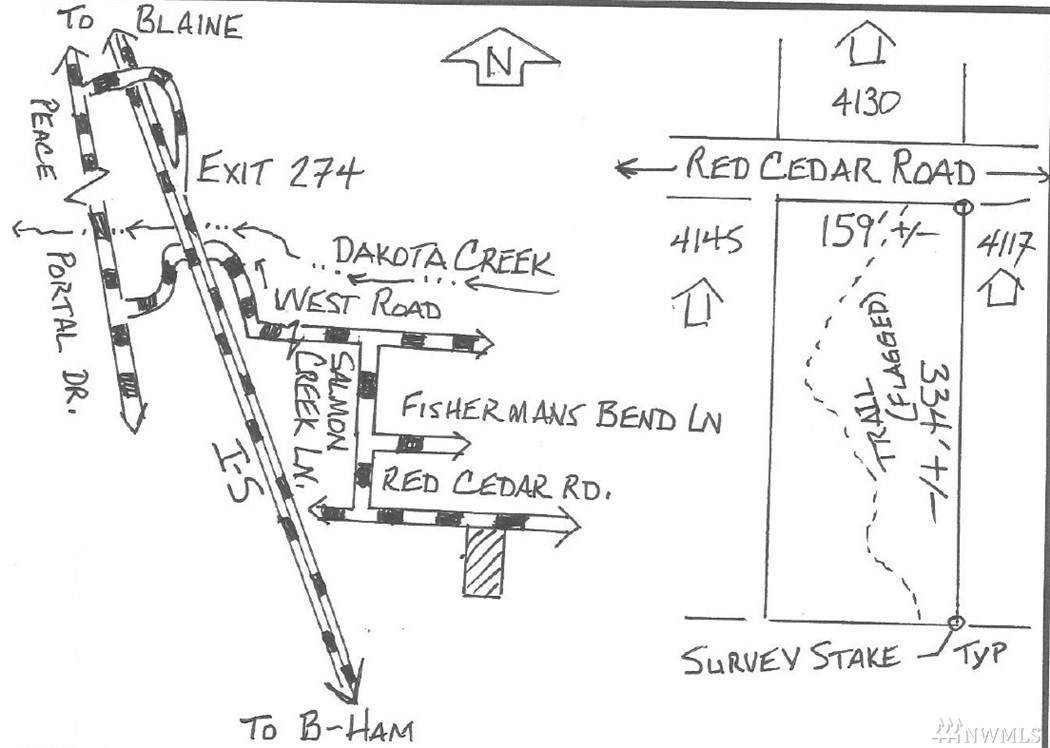 TO BLAINE
N
4130
PEACE
EXIT 274
RED CEDAR ROAD
4145
159' +/-
4117
DAKOTA CREEK
PORTAL DR.
WEST ROAD
SALMON
CREEK LN.
FISHERMANS BEND LN
TRAIL
(FLAGGED)
334' +/-
I-5
RED CEDAR RD.
SURVEY STAKE
TYP
TO B-HAM
NWMLS